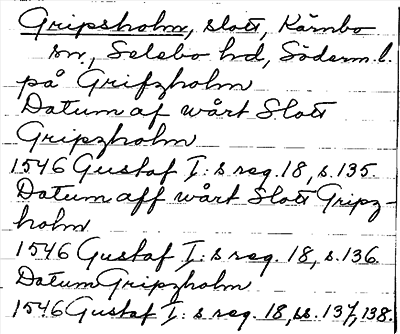 Gripsholm, slott, Kärnbo
sn., Selebo hd, Söderm.l.
på Grifzholm
Datum af wårt Slott
Gripzholm
1546 Gustaf I:s reg. 18, s. 135.
Datum aff wårt Slott Gripz-
holm
1546 Gustaf I:s reg. 18, s. 136
Datum Gripzholm
1546 Gustaf I:s reg. 18, ss. 137, 138.